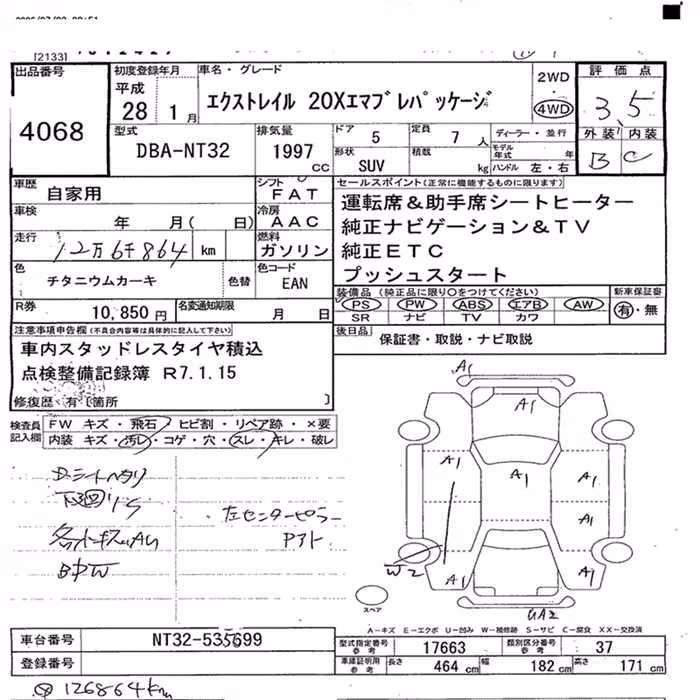 [2133]
出品番号 初度登録年月 車名・グレード 2WD 評価点
4068 平成 28 1月 エクストレイル 20Xエマブレパッケージ 4WD 3.5
外装 内装
B C
型式 排気量 ドア 5 定員 7人 ディーラー・並行
DBA-NT32 1997cc 形状 SUV 積載 kg モデル年式 年
ハンドル 左・右
車歴 自家用 シフト FAT セールスポイント(正常に機能するものに限ります)
車検 年 月( 日) 冷房 AAC 運転席&助手席シートヒーター
走行 12万6千864 km 燃料 ガソリン 純正ナビゲーション&TV
純正ETC
色 チタニウムカーキ 色替 色コード EAN プッシュスタート
R券 10,850円 名変通知期限 月 日 装備品(純正品に限り○をつけてください) 新車保証書
PS PW ABS エアB AW 有・無
SR ナビ TV カワ
注意事項申告欄(不具合内容等は具体的に記入して下さい) 後日品 保証書・取説・ナビ取説
車内スタッドレスタイヤ積込
点検整備記録簿 R7.1.15
修復歴・有〔箇所 〕
検査員記入欄 FW キズ・飛石・ヒビ割・リペア跡・×要
内装 キズ・汚レ・コゲ・穴・スレ・キレ・破レ
A1
A1
A1 A1 A1
A1
W2 A1 A1
スペア
UA2
左センターピラー
各パネルキズAU
B中W
A-キズ E-エクボ U-凹み W-補修跡 S-サビ C-腐食 XX-交換済
車台番号 NT32-535699 型式指定番号参考 17663 類別区分番号参考 37
登録番号 車庫証明用参考 長さ 464cm 幅 182cm 高さ 171cm
126864km